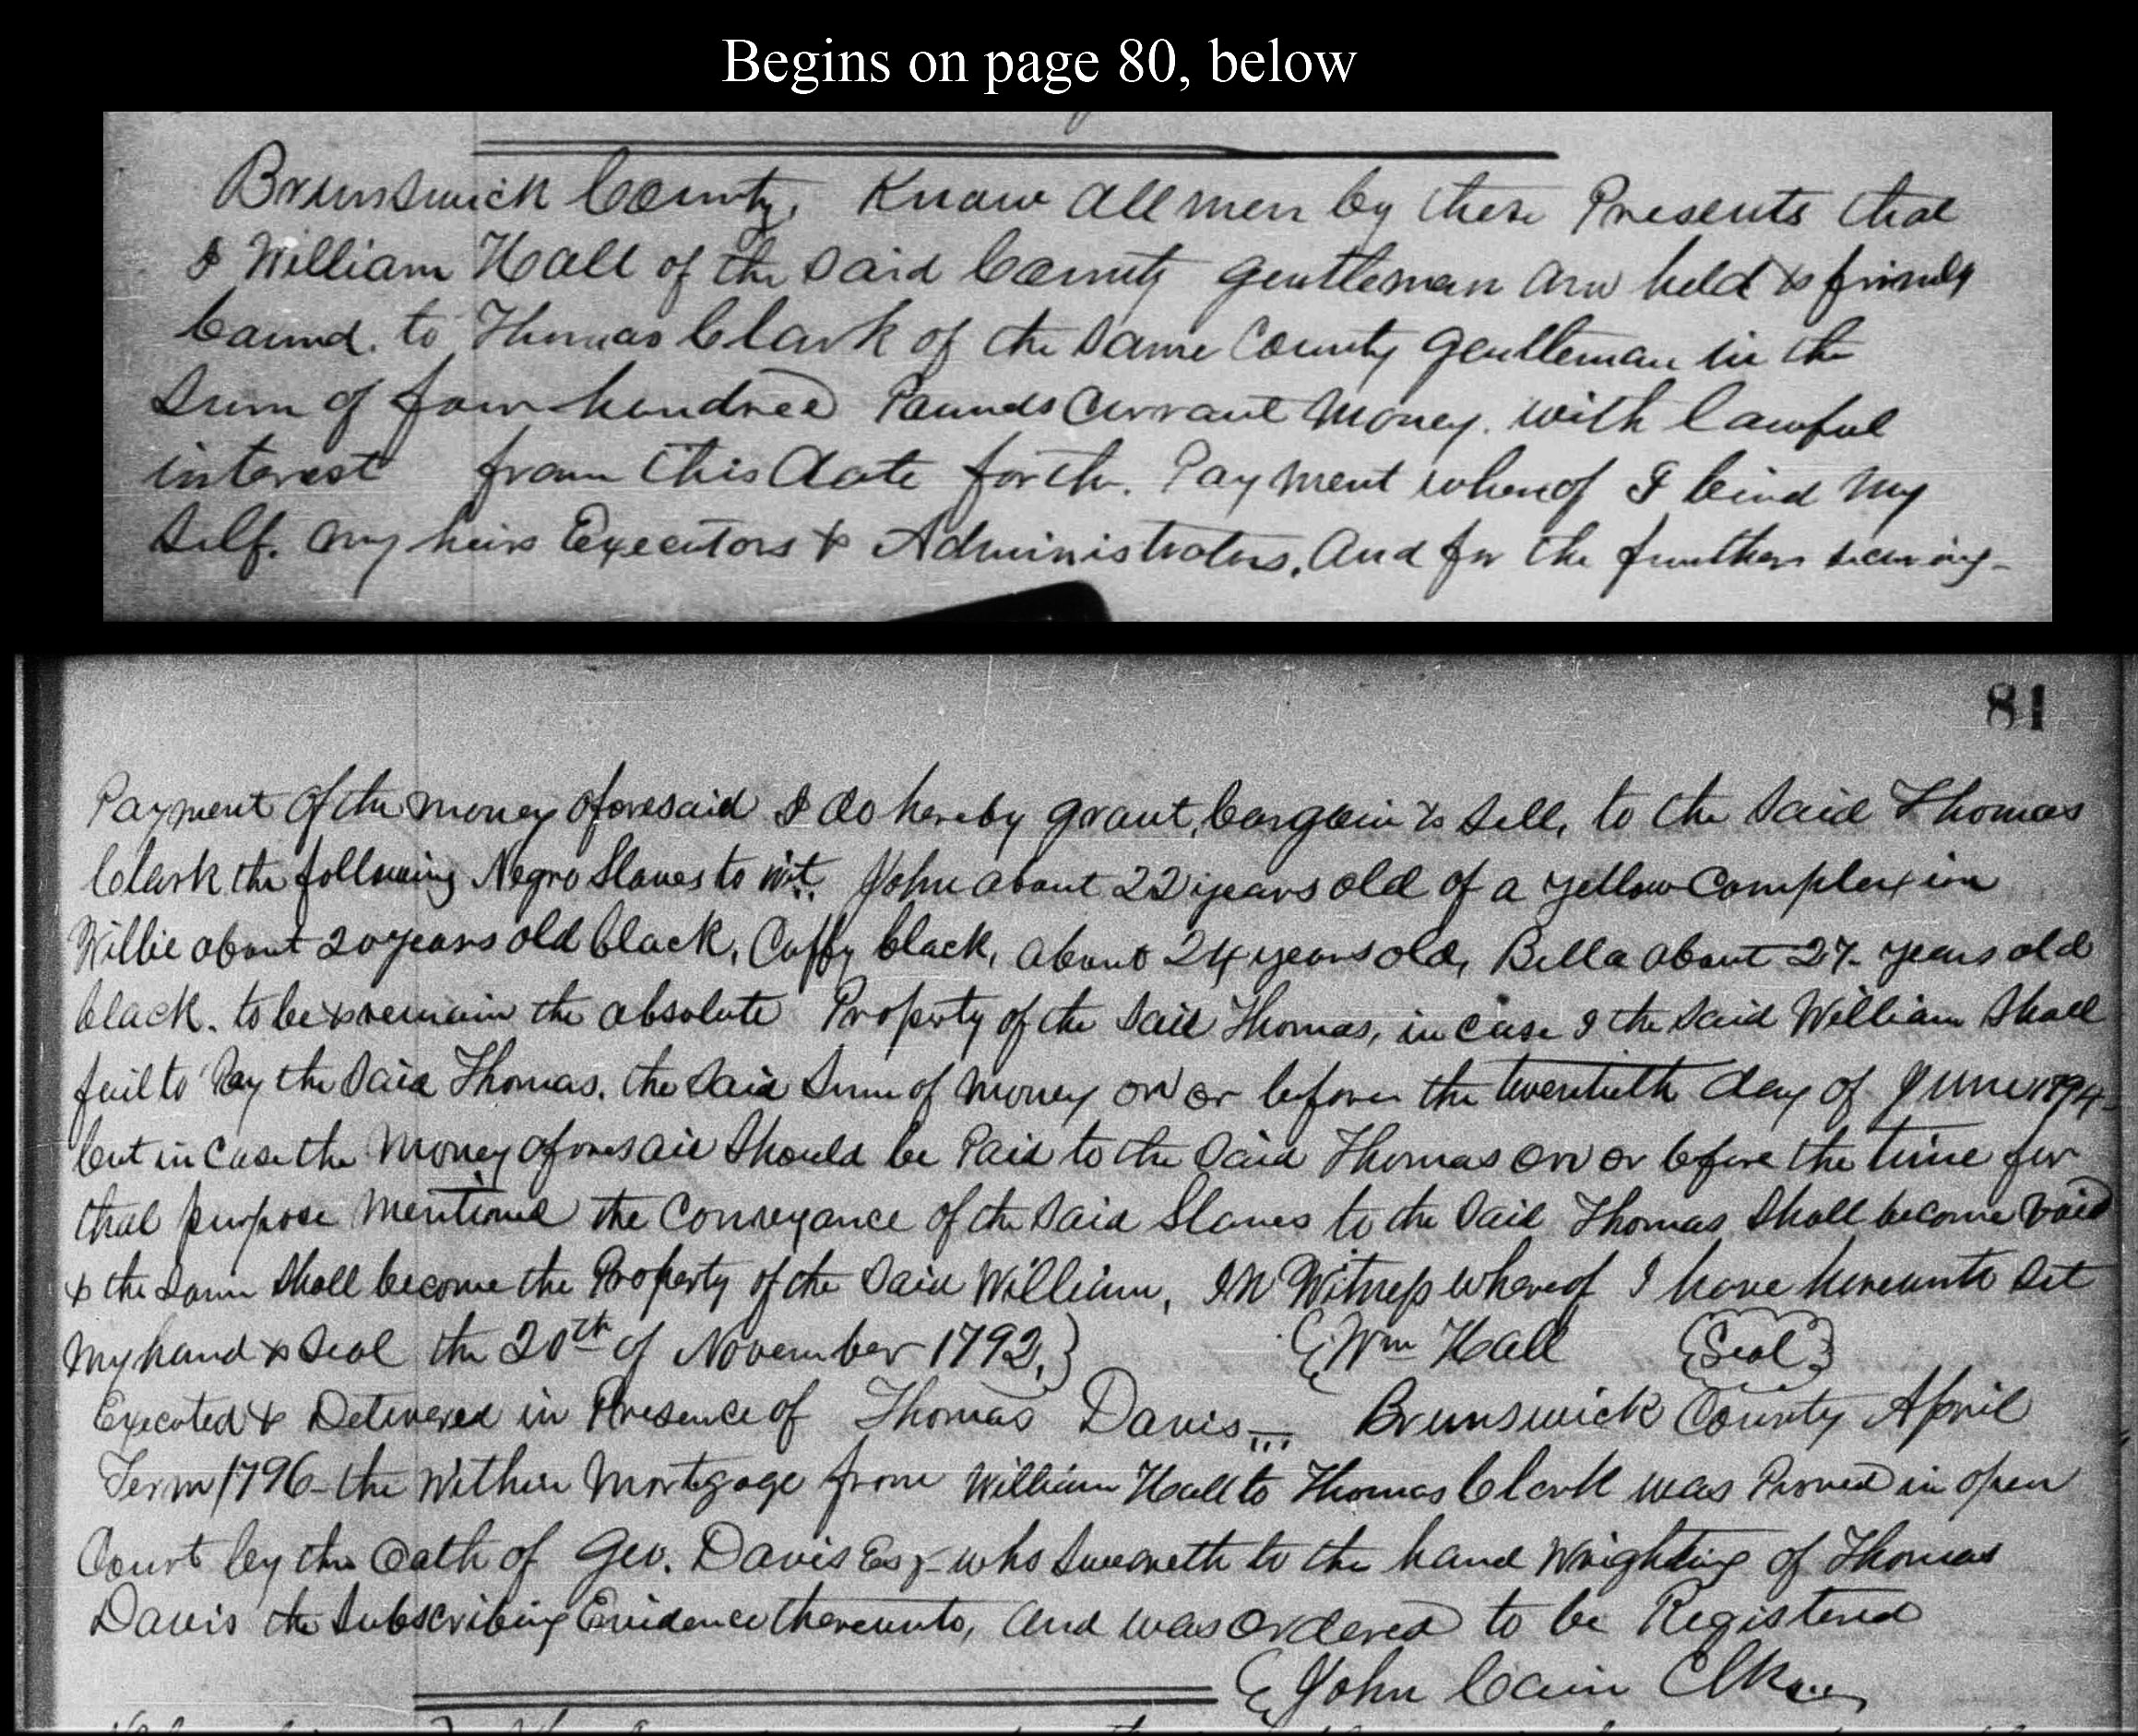 Begins on page 80, below
Brunswick County, Know all men by these Presents that
I William Hall of the said County gentleman am held & firmly
bound. to Thomas Clark of the same County gentleman in the
sum of four hundred Pounds Currant Money. with lawful
interest from this date forth. Payment whereof I bind my
self. my heirs Executors & Administrators. And for the further securing-
81
Payment of the money aforesaid I do hereby grant, bargain & sell, to the said Thomas
Clark the following Negro Slaves to wit. John about 22 years old of a yellow Complexion
Willie about 20 years old black, Cuffy black, about 24 years old, Bella about 27- years old
black. to be & remain the absolute Property of the said Thomas, in case I the said William Shall
fail to Pay the said Thomas. the said Sum of money on or before the twentieth day of June 1794-
but in Case the Money aforesaid Should be Paid to the said Thomas on or before the time for
that purpose mentioned the Conveyance of the said Slaves to the said Thomas Shall become void
& the same Shall become the Property of the said William, In Witness whereof I have hereunto set
my hand & Seal the 20th of November 1792.} {Wm Hall {Seal}
Executed & Delivered in Presence of Thomas Davis... Brunswick County April
Term 1796- the within Mortgage from William Hall to Thomas Clark was Proved in open
Court by the Oath of Geo. Davis Esqr- who Sweareth to the hand Wrighting of Thomas
Davis the Subscribing Evidence thereunto, and was ordered to be Registered
{John Cain Clk